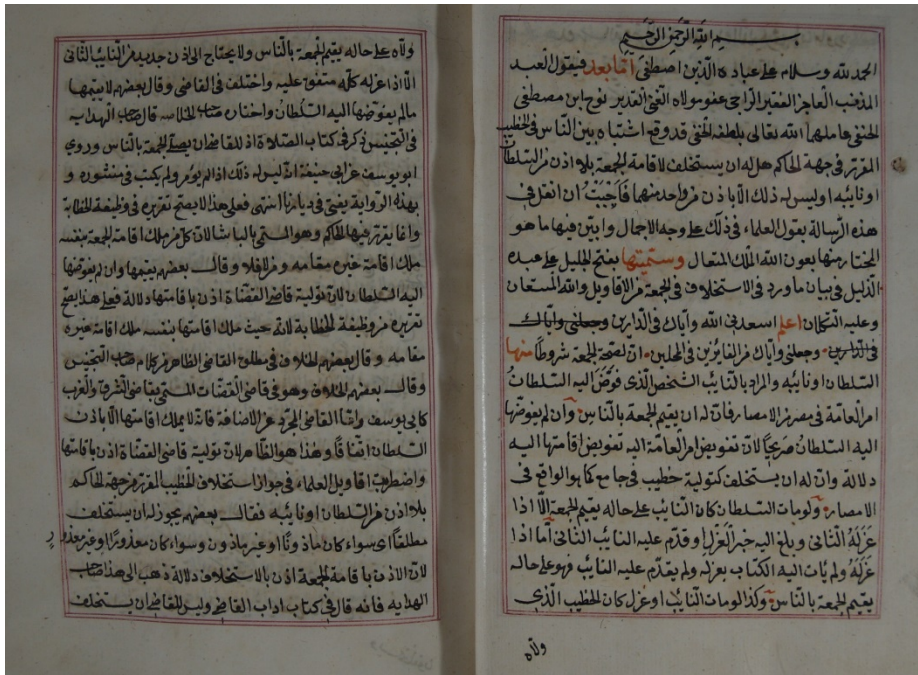 بسم الله الرحمن الرحيم
الحمد لله وسلام على عباده الذين اصطفى أما بعد فيقول العبد
المذنب العاجز الفقير الراجي عفو مولاه الغني القدير نوح ابن مصطفى
الحنفي عاملهما الله تعالى بلطفه الخفي قد وقع اشتباه بين الناس في الخطيب
المقرر في جهة الحاكم هل له ان يستخلف لاقامة الجمعة بلا اذن من السلطان
او نائبه او ليس له ذلك الا باذن من واحد منهما فاجبت ان انقل في
هذه الرسالة بقول العلماء في ذلك على وجه الاجمال وابين فيها ما هو
المختار منها بعون الله الملك المتعال وسميتها بفتح الجليل على عبده
الذليل في بيان ما ورد في الاستخلاف في الجمعة من الاقاويل والله المستعان
وعليه التكلان اعلم اسعدني الله واياك في الدارين وجعلني واياك
في الدارين وجعلني واياك من الفايزين في المحلين ان لصحة الجمعة شروطا منها
السلطان او نائبه والمراد بالنايب الشخص الذي فوض اليه السلطان
امر العامة في مصر من الامصار فان له ان يقيم الجمعة بالناس وان لم يفوضها
اليه السلطان صريحا لان تفويض امر العامة اليه تفويض اقامتها اليه
دلالة وان له ان يستخلف كتولية خطيب في جامع كما هو الواقع في
الامصار ولو مات السلطان كان النايب على حاله يقيم الجمعة الا اذا
عزله الثاني وبلغ اليه خبر العزل او قدم عليه النايب الثاني اما اذا
عزله ولم يات اليه الكتاب بعزله ولم يقدم عليه النايب فهو على حاله
يقيم الجمعة بالناس وكذا لو مات النايب او عزل كان الخطيب الذي
ولاه
ولاه على حاله يقيم الجمعة بالناس ولا يحتاج الى اذن جديد من النايب الثاني
الا اذا عزله كله متفق عليه واختلف في القاضي وقال بعضهم لا يقيمها
مالم يفوضها اليه السلطان واختاره صاحب الخلاصه قال صاحب الهدايه
في التجنيس ذكر في كتاب الصلاة اذ للقاضي ان يصلي الجمعة بالناس وروي
ابو يوسف عن ابي حنيفة انه ليس له ذلك اذا لم يؤمر ولم يكتب في منشوره و
بهذه الرواية يفتى في ديارنا انتهى فعلى هذا لا يصح تقريره في وظيفة الخطابة
وانما يقرر فيها الحاكم وهو المسمى بالباشا لان كل من ملك اقامة الجمعة بنفسه
ملك اقامة غيره مقامه ومن لا فلا وقال بعضهم يقيمها وان لم يفوضها
اليه السلطان لان تولية قاضي القضاة اذن باقامتها دلالة فعلى هذا يصح
تقريره من وظيفة الخطابة لانه حيث ملك اقامتها بنفسه ملك اقامة غيره
مقامه وقال بعضهم الخلاف في مطلق القاضي الظاهر من كلام صاحب التجنيس
وقال بعضهم الخلاف وهو في قاضي القضات المسمى بقاضي الشرق والغرب
كابي يوسف واما القاضي المجرد عن الاضافة فانه لا يملك اقامتها الا باذن
السلطان اتفاقا وهذا هو الظاهر لان تولية قاضي القضاة اذن باقامتها
واضطربت اقاويل العلماء في جواز استخلاف الخطيب المقرر من جهة الحاكم
بلا اذن من السلطان او نائبه فقال بعضهم يجوز له ان يستخلف
مطلقا اي سواء كان ماذونا او غير ماذون وسواء كان معذورا او غير معذور
لان الاذن باقامة الجمعة اذن بالاستخلاف دلالة ذهب الى هذا صاحب
الهدايه فانه قال في كتاب اداب القاضي وليس للقاضي ان يستخلف